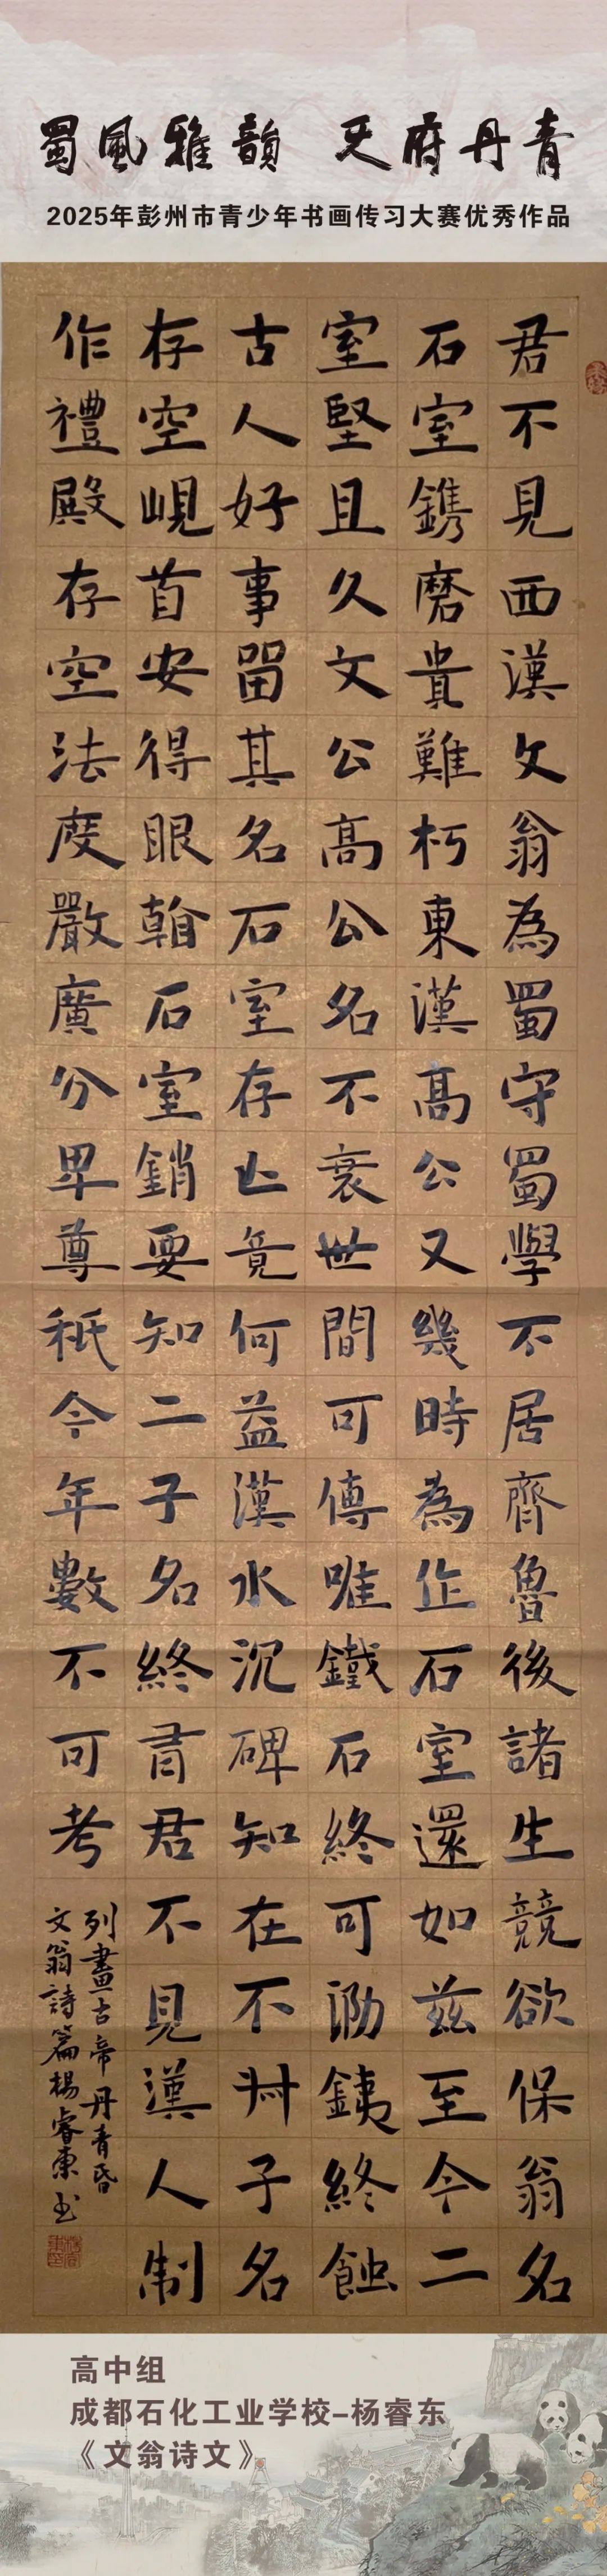 蜀風雅韻 天府丹青
2025年彭州市青少年书画传习大赛优秀作品
君不見西漢文翁為蜀守蜀學不居齊魯後諸生競欲保翁名
石室鐫磨貴難朽東漢高公又幾時為作石室還如茲至今二
室堅且久文公高公名不衰世間可傳唯鐵石終可泐銕終蝕
古人好事留其名石室存亡竟何益漢水沉碑知在不叔子名
存空峴首安得眼翰石室銷要知二子名終首君不見漢人制
作禮殿存空法度嚴廣分卑尊秖今年數不可考
列畫古帝丹青昏
文翁詩篇楊睿東书
高中组
成都石化工业学校-杨睿东
《文翁诗文》